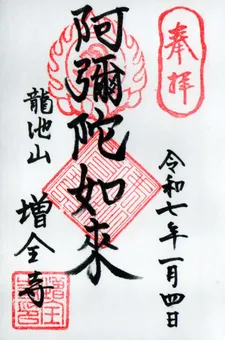 奉拝
令和七年一月四日
阿彌陀如來
龍池山
增全寺